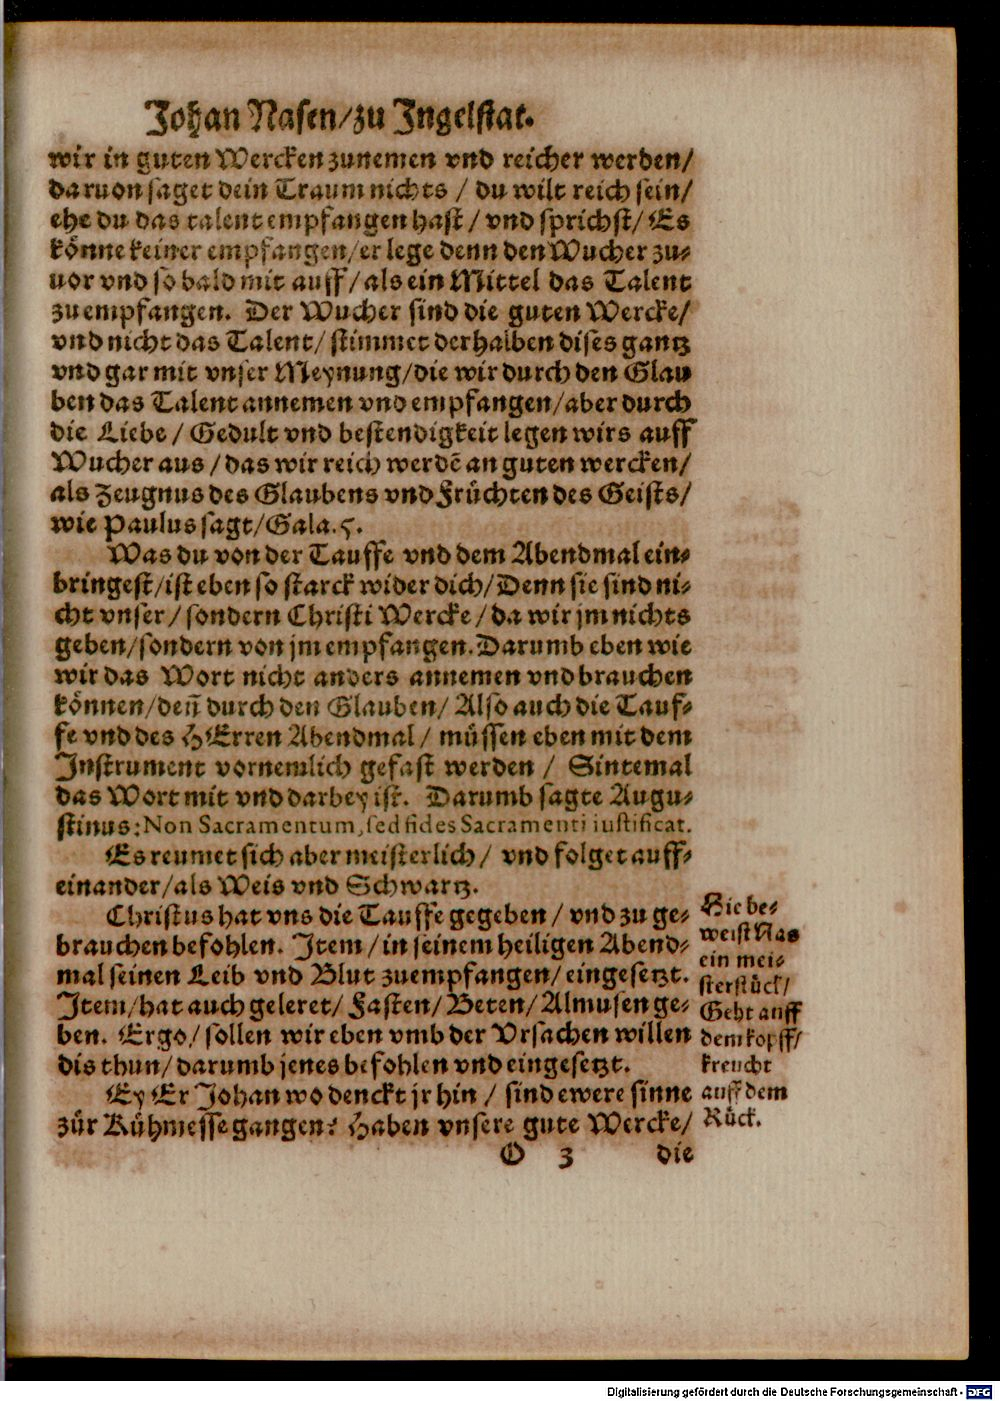 Johan Nasen/zu Ingelstat.
wir in guten Wercken zunemen vnd reicher werden/
daruon saget dein Traum nichts / du wilt reich sein/
ehe du das talent empfangen hast / vnd sprichst/ Es
könne keiner empfangen/er lege denn den Wucher zu-
uor vnd so bald mit auff/als ein Mittel das Talent
zuempfangen. Der Wucher sind die guten Wercke/
vnd nicht das Talent/ stimmet derhalben dises gantz
vnd gar mit vnser Meynung/die wir durch den Glau
ben das Talent annemen vnd empfangen/aber durch
die Liebe/ Gedult vnd bestendigkeit legen wirs auff
Wucher aus /das wir reich werdē an guten wercken/
als Zeugnus des Glaubens vnd Früchten des Geists/
wie Paulus sagt/Gala.5.
Was du von der Tauffe vnd dem Abendmal ein-
bringest/ist eben so starck wider dich/Denn sie sind ni-
cht vnser/sondern Christi Wercke/da wir jm nichts
geben/sondern von jm empfangen. Darumb eben wie
wir das Wort nicht anders annemen vnd brauchen
können/deñ durch den Glauben/ Also auch die Tauf-
fe vnd des HErren Abendmal/ müssen eben mit dem
Instrument vornemlich gefast werden / Sintemal
das Wort mit vnd darbey ist. Darumb sagte Augu-
stinus: Non Sacramentum, sed fides Sacramenti iustificat.
Es reumet sich aber meisterlich/ vnd folget auff-
einander/als Weis vnd Schwartz.
Christus hat vns die Tauffe gegeben/ vnd zu ge-
brauchen befohlen. Item/in seinem heiligen Abend-
mal seinen Leib vnd Blut zuempfangen/eingesetzt.
Item/hat auch geleret/ Fasten/Beten/Almusen ge-
ben. Ergo/ sollen wir eben vmb der Vrsachen willen
dis thun/darumb jenes befohlen vnd eingesetzt.
Ey Er Johan wo denckt jr hin / sind ewere sinne
zůr Kühmesse gangen? Haben vnsere gute Wercke/
Hie be-
weist Nas
ein mei-
sterstück/
Geht auff
dem kopff/
kreucht
auff dem
Rück.
O 3 die
Digitalisierung gefördert durch die Deutsche Forschungsgemeinschaft - DFG